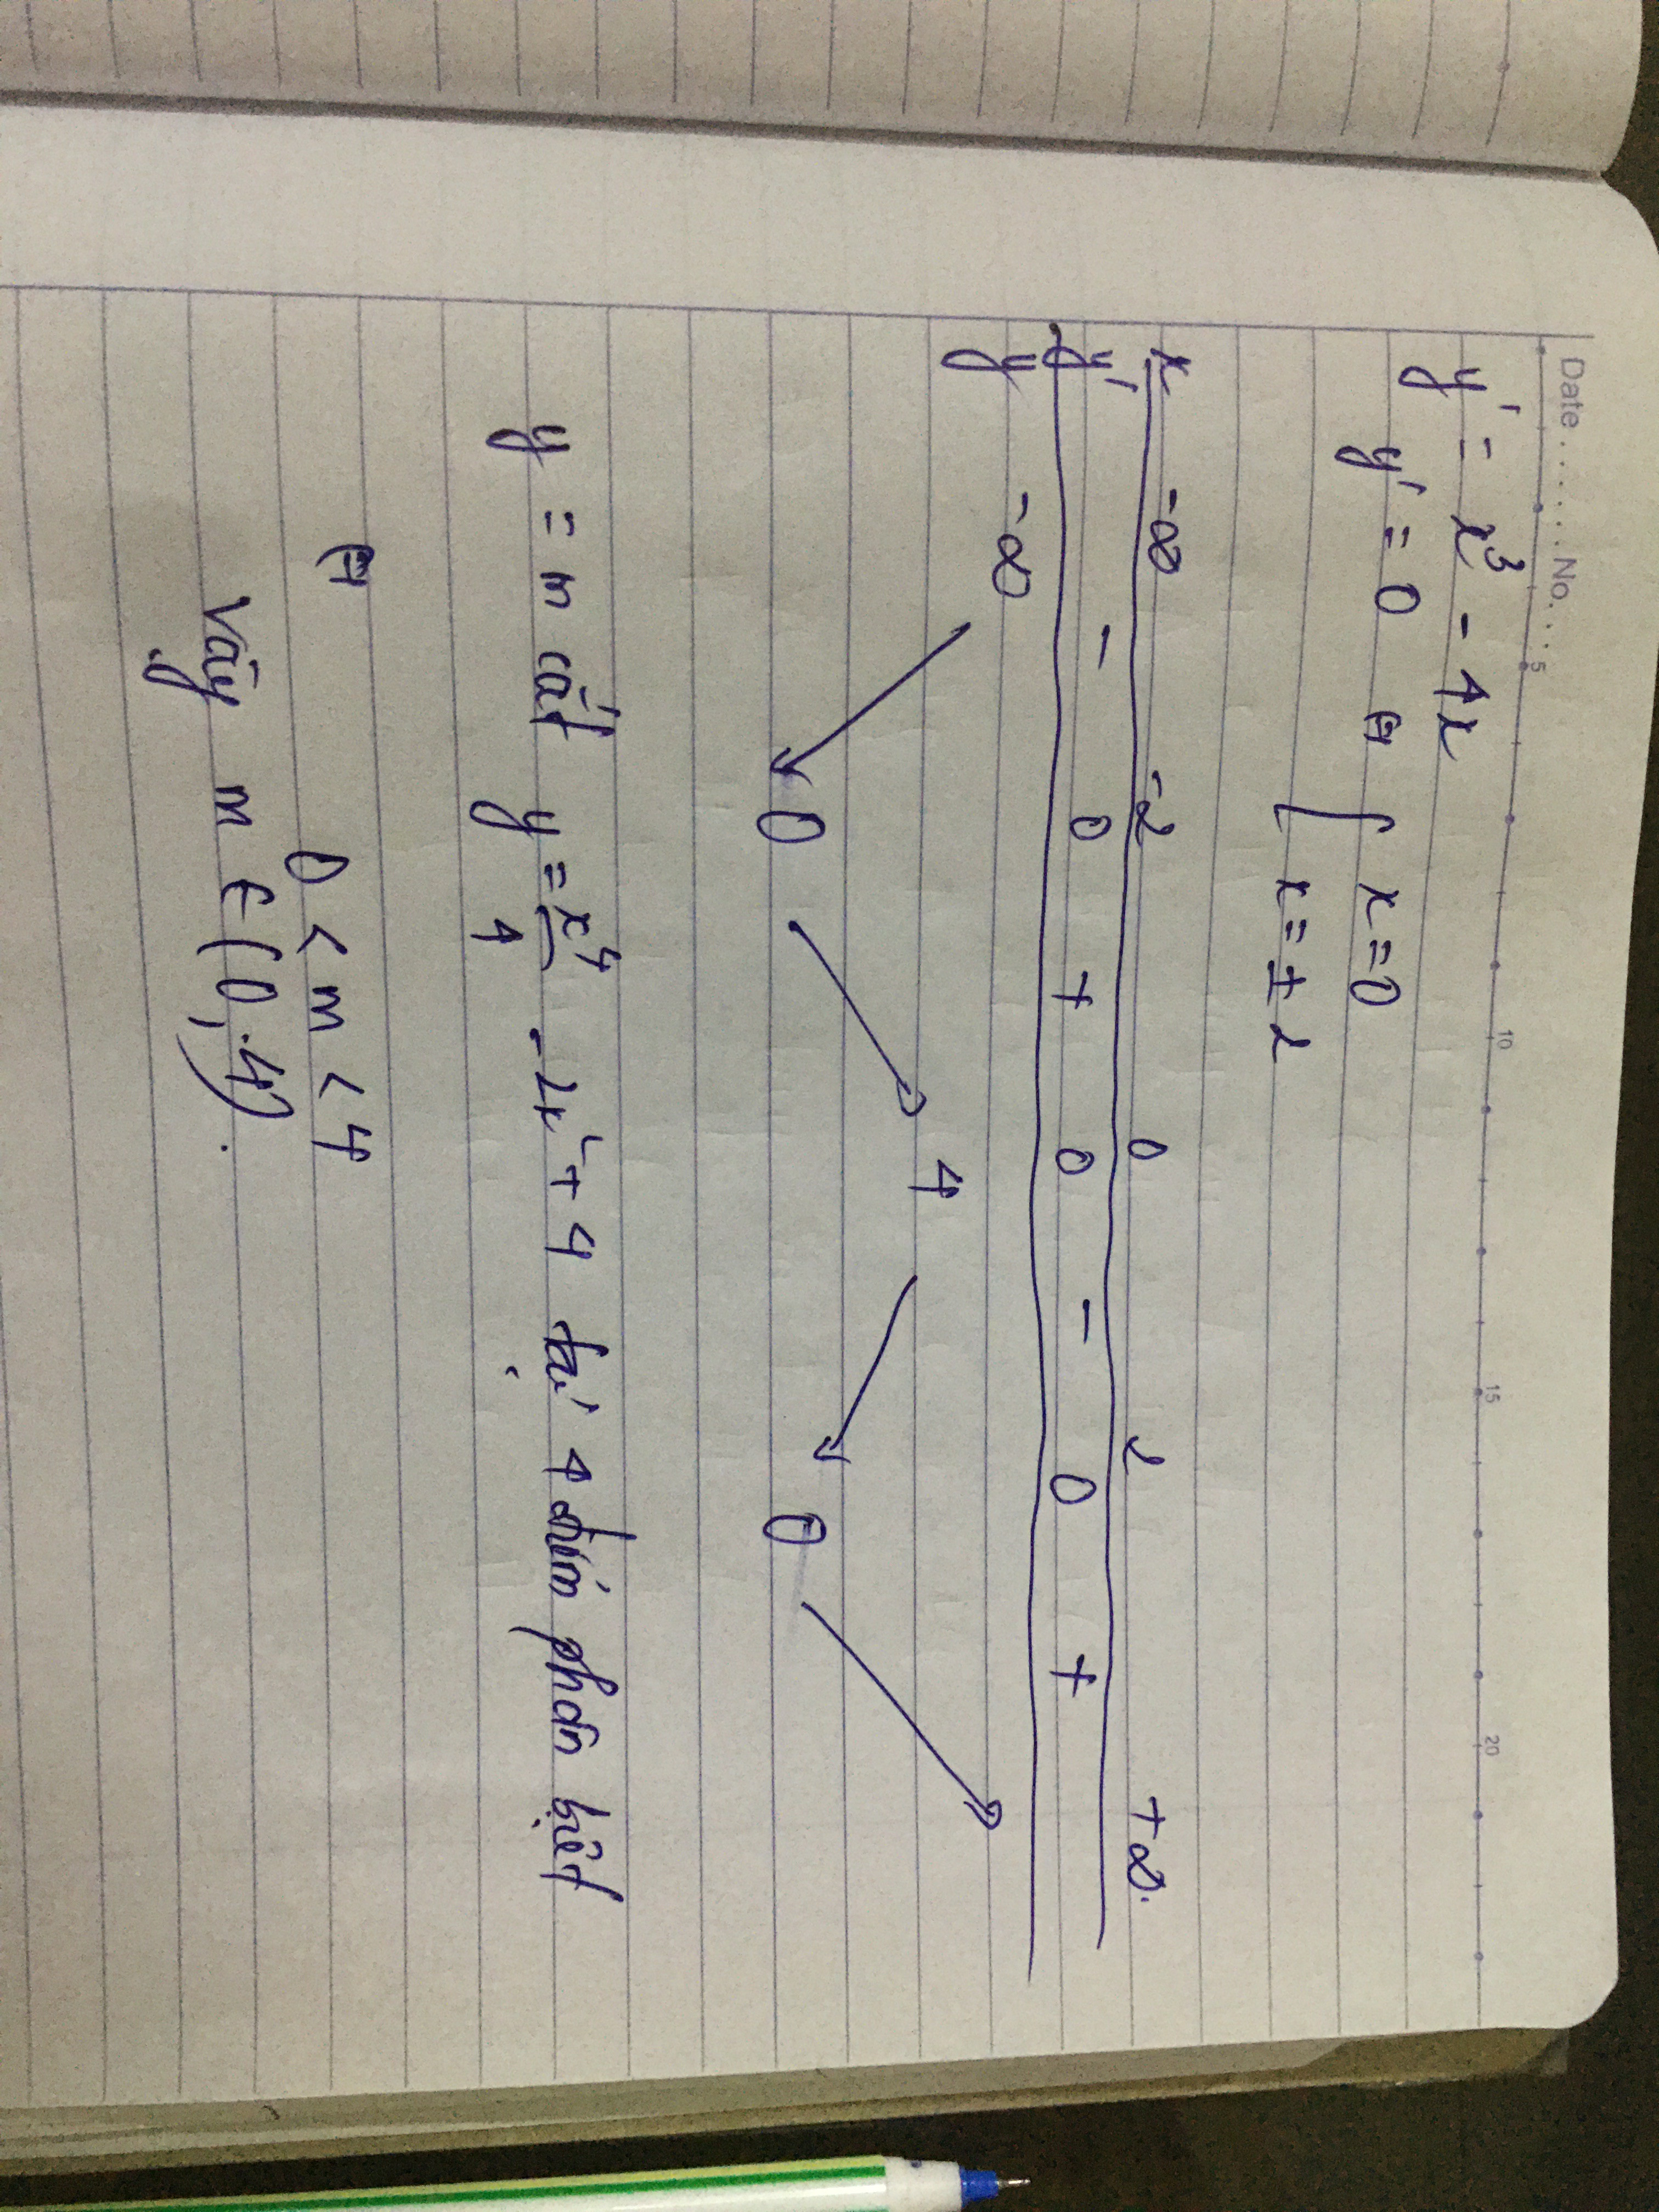 Date . . . . . . No. . . .
5 10 15 20
y' = x³ - 4x
y' = 0 ⇔ [ x = 0
x = ± 2
x -∞ -2 0 2 +∞
y' - 0 + 0 - 0 +
y -∞ 4
0 0
y = m cắt y = x⁴/4 - 2x² + 4 tại 4 điểm phân biệt
⇔ 0 < m < 4
Vậy m ∈ (0, 4).